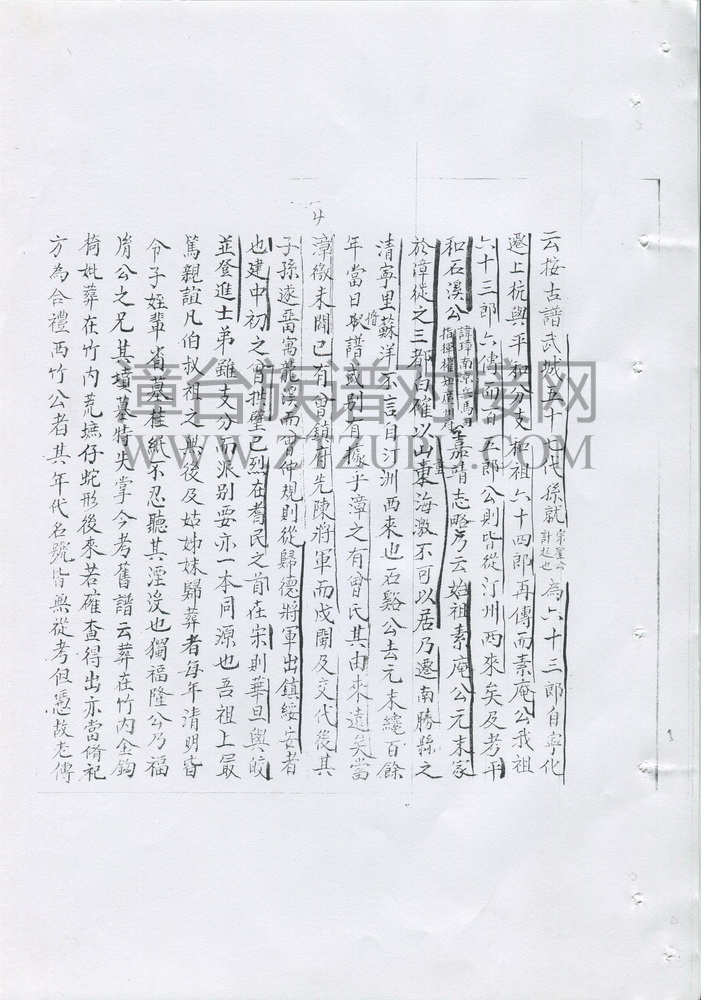 云按古譜武城五十七代孫就宗聖公計起也為六十三郎自寧化
遷上杭與平和分支和祖六十四郎再傳而素庵公我祖
六十三郎六傳而百三郎公則皆從汀州西來矣及考平
和石溪公諱璋南京兵馬司指揮嘉靖志略乃云始祖素庵公元末家
於漳徙之三都白確以山東海激不可以居乃遷南勝縣之
清寧里蘇洋不言自汀洲西來也石谿公去元末纔百餘
年當日敢將譜或別有據乎漳之有曾氏其由來遠矣當
漳徼未闢已有曾鎮府先陳將軍而戍閩及交代後其
子孫遂留寓龍溪而曾仲規則從歸德將軍出鎮綏安者
也建中初之曾拱璧已烈在耆民之首在宋則華旦與皎
並登進士弟雖支分而派別要亦一本同源也吾祖上最
篤親誼凡伯叔祖之無後及姑姊妹歸葬者每年清明皆
令子姪輩省墓挂紙不忍聽其淫沒也獨福隆公乃福
膺公之兄其墳墓特失掌今考舊譜云葬在竹內金鈎
椅妣葬在竹內荒墲仔蛇形後來若確查得出亦當脩祀
方為合禮西竹公者其年代名號皆無從考但憑故老傳
章台族谱对接网
WWW.ZTZUPU.COM